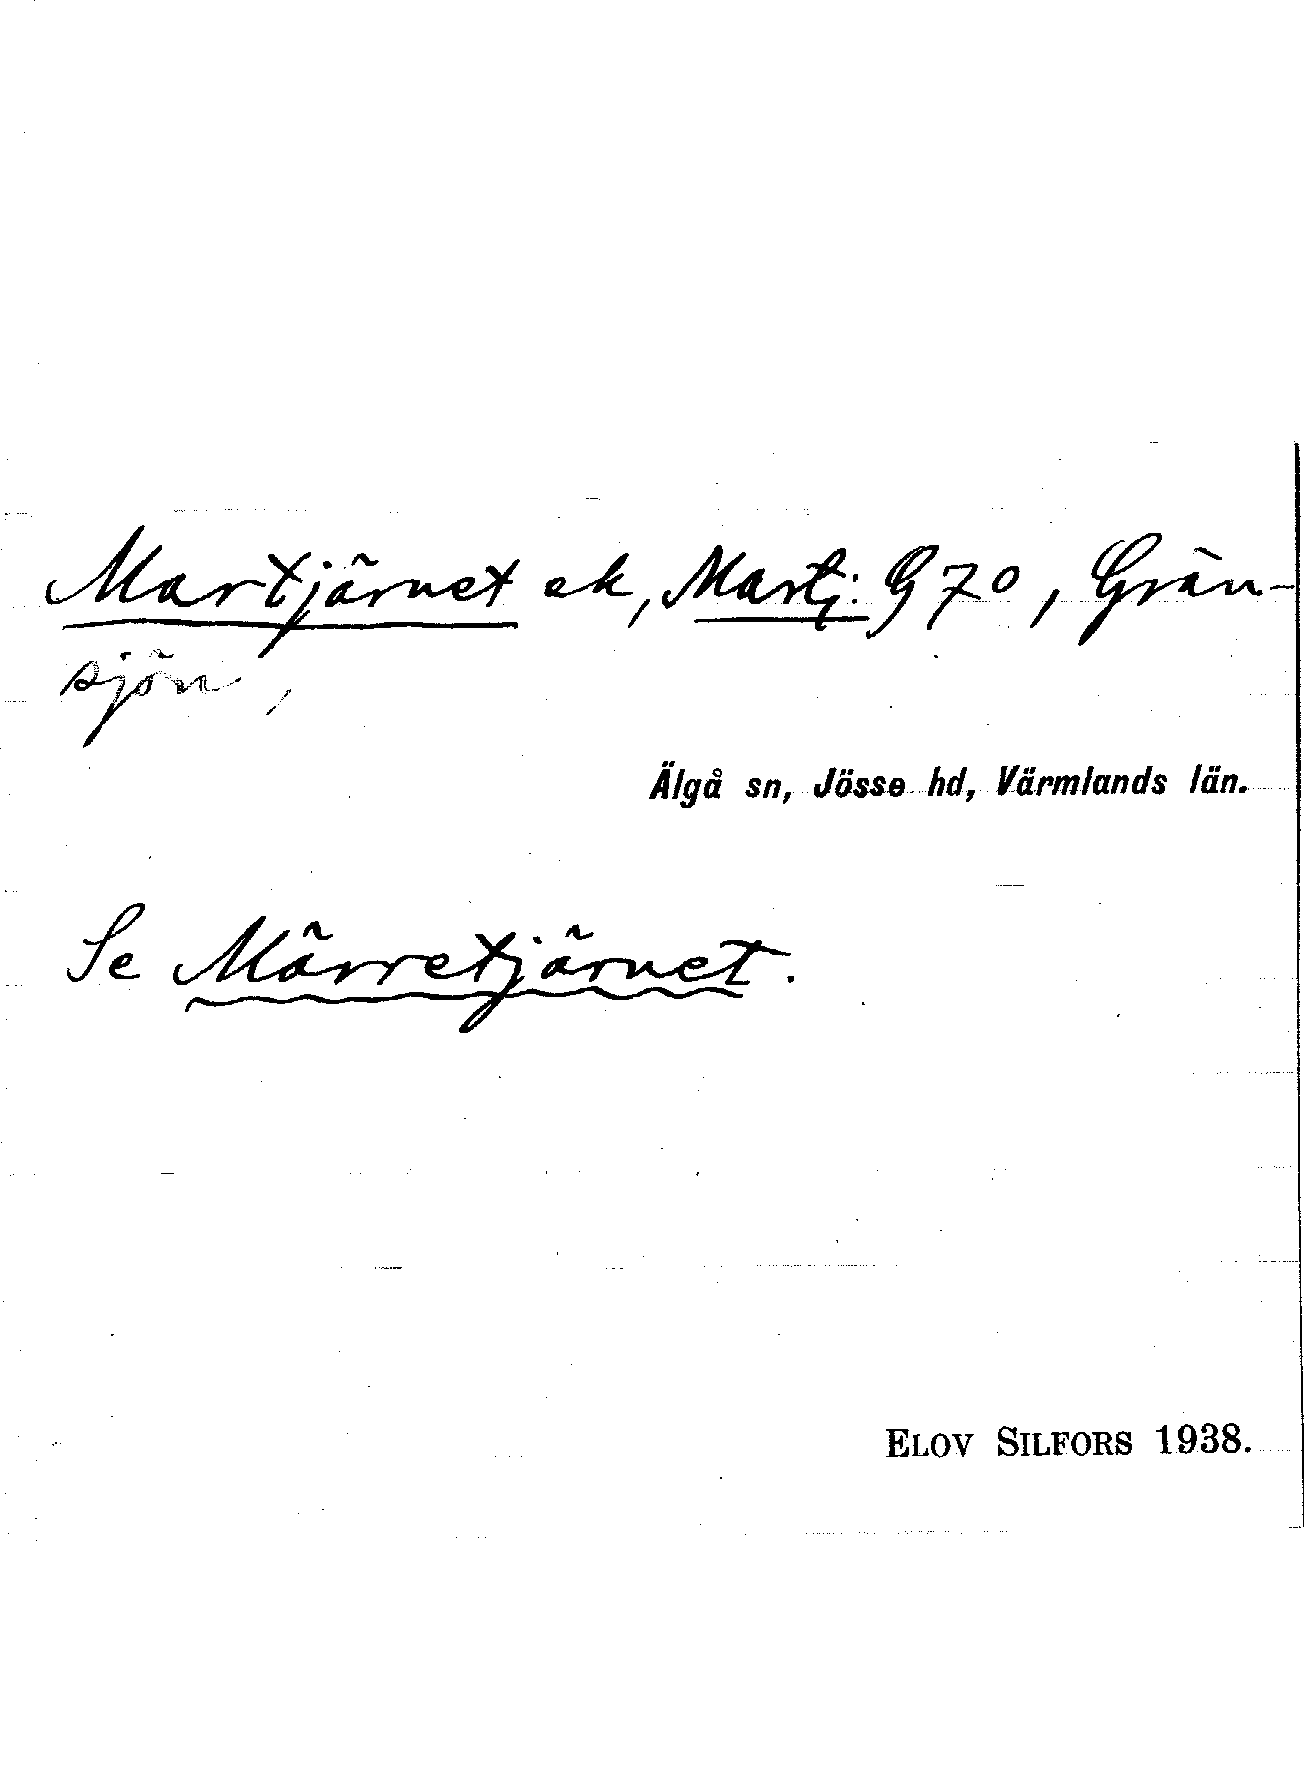 Martjärnet ek, Martj: G 70, Grän-
sjön,
Älgå sn, Jösse hd, Värmlands län.
Se Märretjärnet.
ELOV SILFORS 1938.